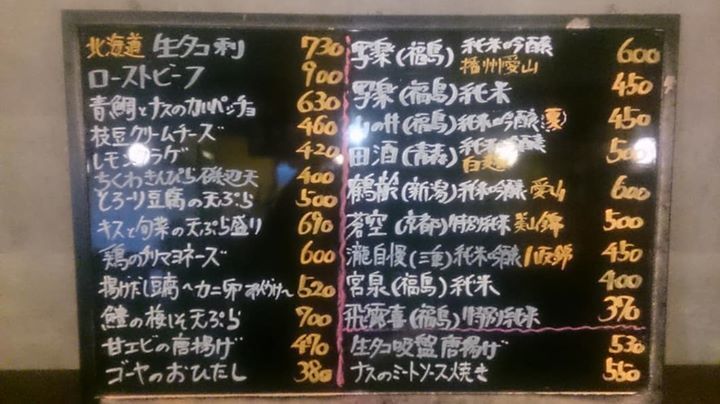 北海道 生タコ刺 730
ローストビーフ 900
青鯛とナスのカルパッチョ 630
枝豆クリームチーズ 460
レモンクラゲ 420
ちくわきんぴら磯辺天 400
とろーり豆腐の天ぷら 500
キスと旬菜の天ぷら盛り 690
鶏のカリマヨネーズ 600
揚げだし豆腐〜カニ卵あんかけ〜 520
鱧の梅しそ天ぷら 700
甘エビの唐揚げ 470
ゴーヤのおひたし 380
写楽(福島)純米吟醸 播州愛山 600
写楽(福島)純米 450
山の井(福島)純米吟醸 夏 450
田酒(青森)純米吟醸 白麹 500
鶴齢(新潟)純米吟醸 愛山 600
蒼空(京都)特別純米 美山錦 500
瀧自慢(三重)純米吟醸 450
宮泉(福島)純米 400
飛露喜(福島)特別純米 370
生タコ吸盤唐揚げ 530
ナスのミートソース焼き 550